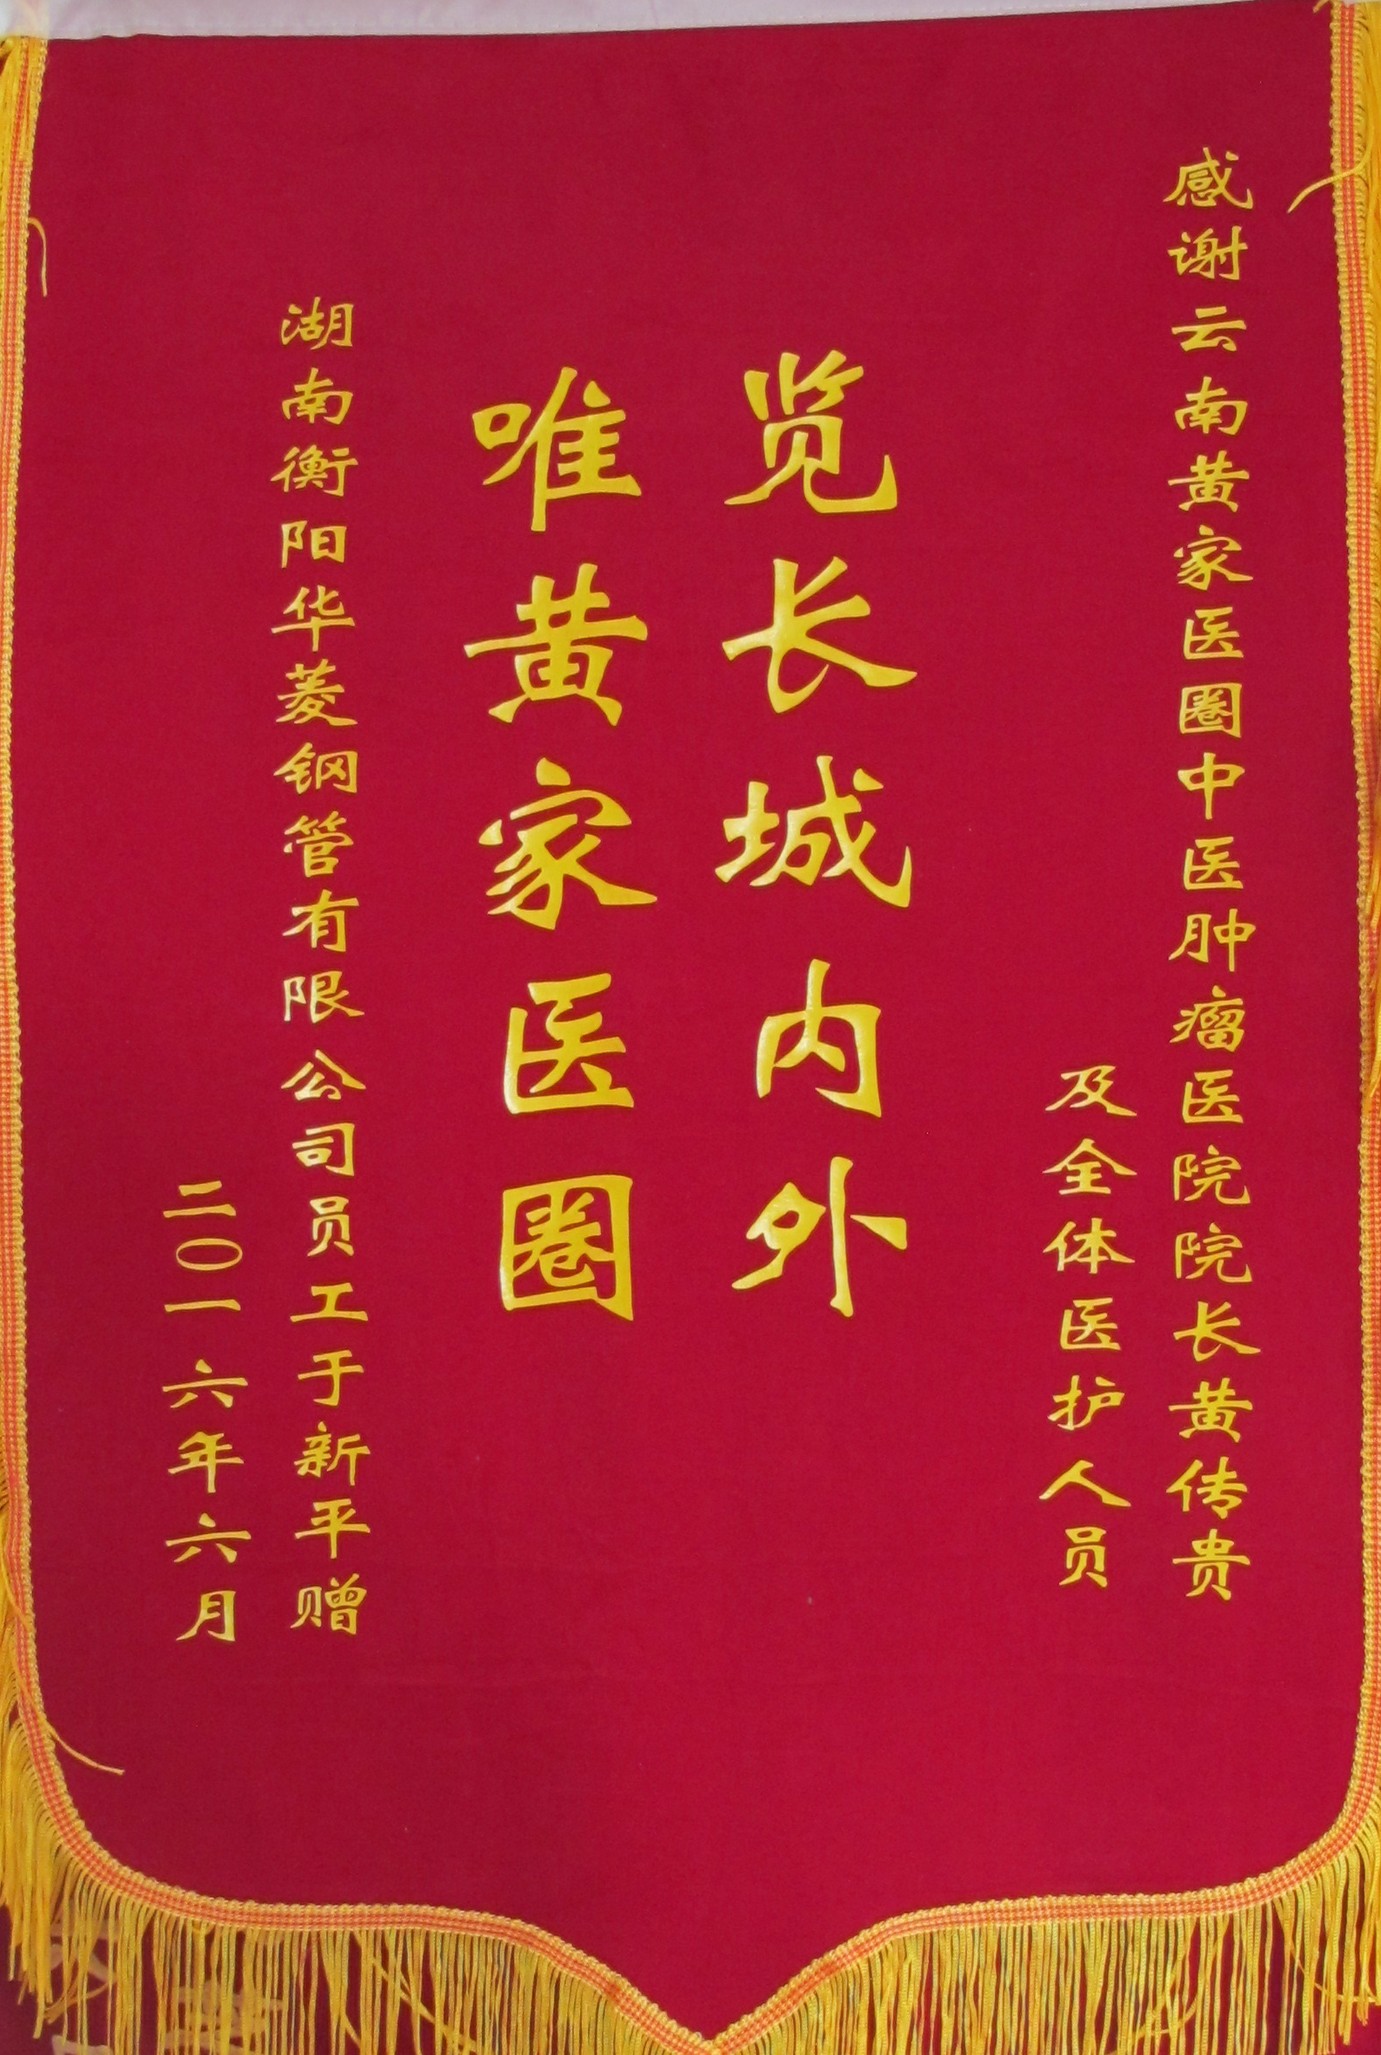 感谢云南黄家医圈中医肿瘤医院院长黄传贵
及全体医护人员
览长城内外
唯黄家医圈
湖南衡阳华菱钢管有限公司员工于新平赠
二〇一六年六月